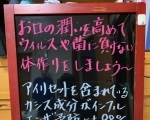 お口の潤いを高めて
ウィルスや菌に負けない
体作りをしましょう〜
アイリセットを含まれている
カシス成分が